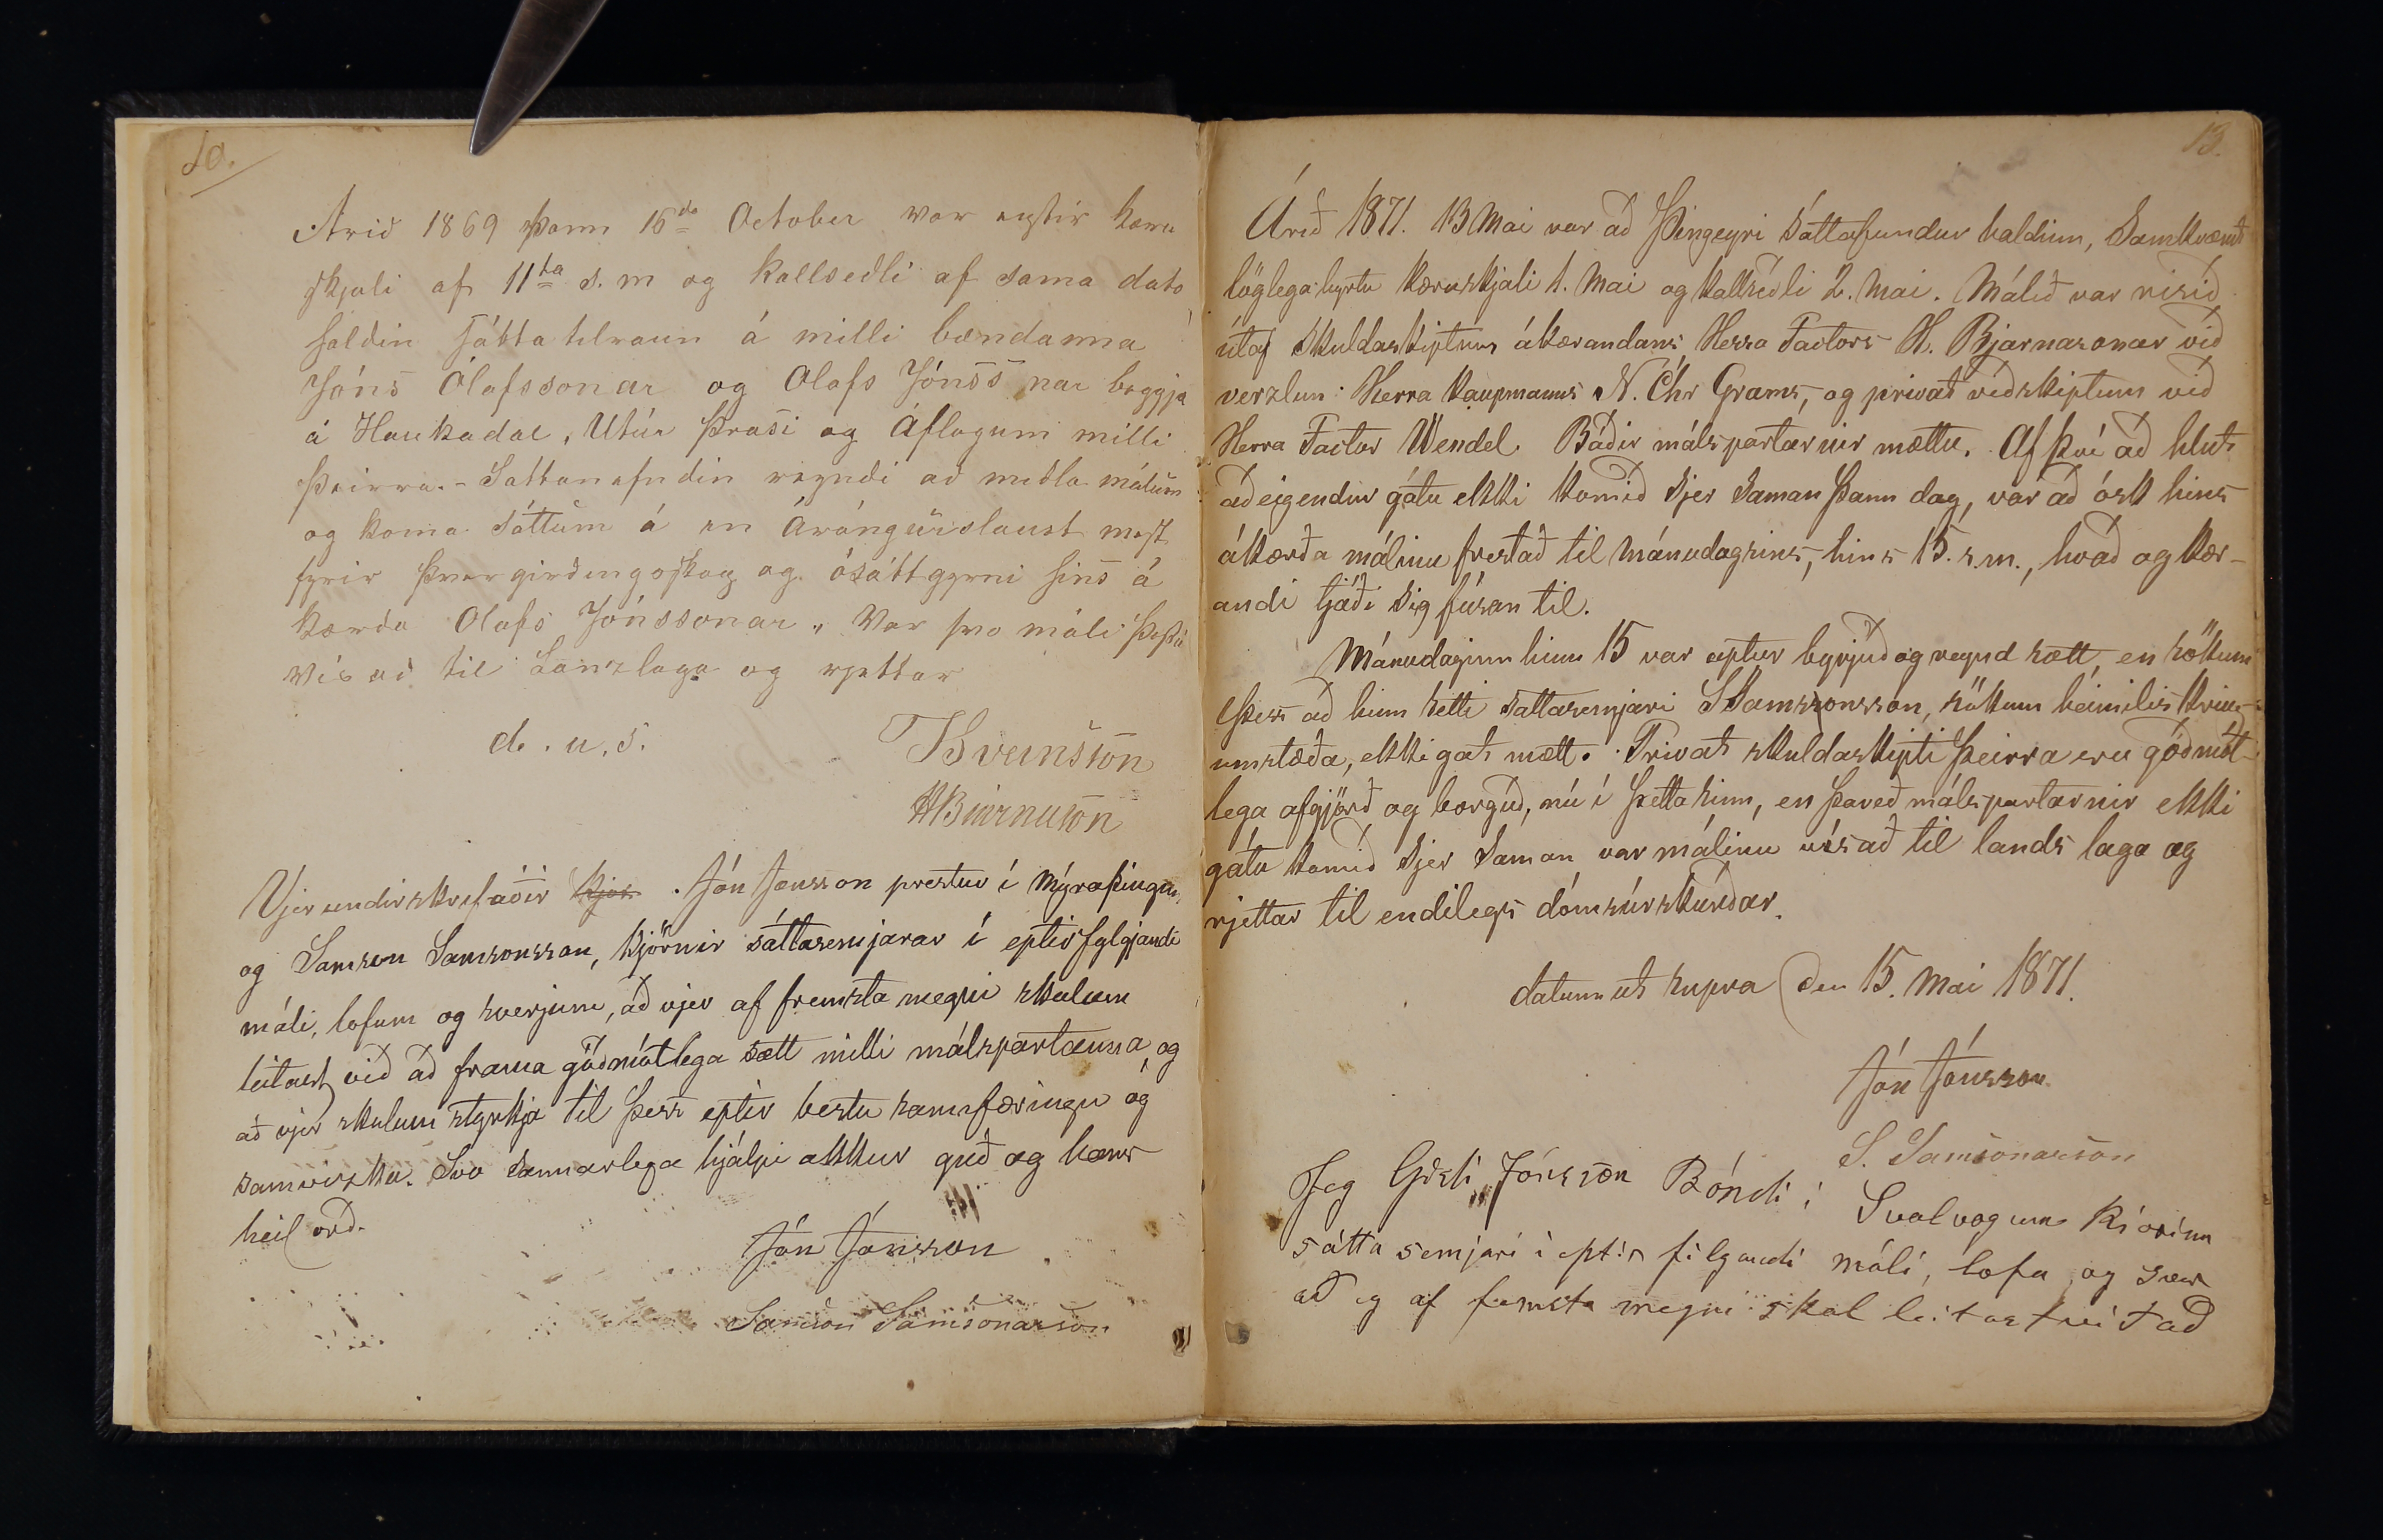 10.
Arið 1869 Þann 16da October var eptir kæru
skjali af 11ta s. m og kallseðli af sama dato
haldin sátta tilraun á milli bændanna
Jóns Ólafssonar og Olafs Jónssonar beggja
á Haukadal, Utúr Þrasi og Áflogum milli
Þeirra. - Sáttanefndin reyndi að miðla málum
og koma sáttum á en Árángurslaust mest
fyrir Þvergirðingsskap og ósáttgyrni hins á
kærda Olafs Jónssonar. Var svo máli Þessu
Vísað til Landslaga og rjettar
d. u. s.
TBveinsson
HBiarnason
Vjer undirskrifaðir kjör Jón Jónsson prestur í Mýraþingum,
og Samson Samsonsson, kjörnir sáttasemjarar í eptirfylgjandi
máli, lofum og sverjum, að vjer af fremsta megni skulum
leitast við að frama góðmótlega sætt milli málspartanna, og
að vjer skulum styrkja til þess eptir bestu sannfæringu og
samvizku. Svo sannarlega hjálpi okkur guð og hans
heil. orð.
Jón Jónsson
Samson Samsonarson
13.
Árið 1871. 13 Mai var að Þingeyri sáttafundur haldinn, Samkvæmt
löglega byrtu kæruskjali 1. Mai og kallseðli 2. Mai. Málið var risið
útaf skuldaskiptum ákærandans Herra Factors H. Bjarnasonar við
verzlun Herra Kaupmanns N. Chr Grams, og privat viðskiptum við
Herra Factor Wendel. Báðir málspartarnir mættu. Af því að hlut-
aðeigendur gátu ekki komið sjer saman þann dag, var að ósk hins
ákærða málinu frestað til Mánudagsins, hins 15. s.m., hvað og kær-
andi tjáði sig fúsan til.
Mánudaginn hinn 15 var aptur byrjuð og reynd sætt, en sökum
þess að hinn setti sattasemjari S Samssonsson, sökum heimilis kring-
umstæða, ekki gat mætt. Privat skuldaskipti þeirra eru góðmót-
lega afgjörð og borguð, nú í þetta sinn, en þareð málspartarnir ekki
gátu komið sjer saman var málinu vísað til lands laga og
rjettar til endilegs dómsúrskurðar.
datum ut supra den 15. Mai 1871.
Jón Jónsson
S. Samsonarson
Jeg Gisli Jónsson Bóndi i Svalvogum kiörinn
sátta semjari i eptir filgandi máli, lofa og sver
að eg af fremsta megni skal leitast við að